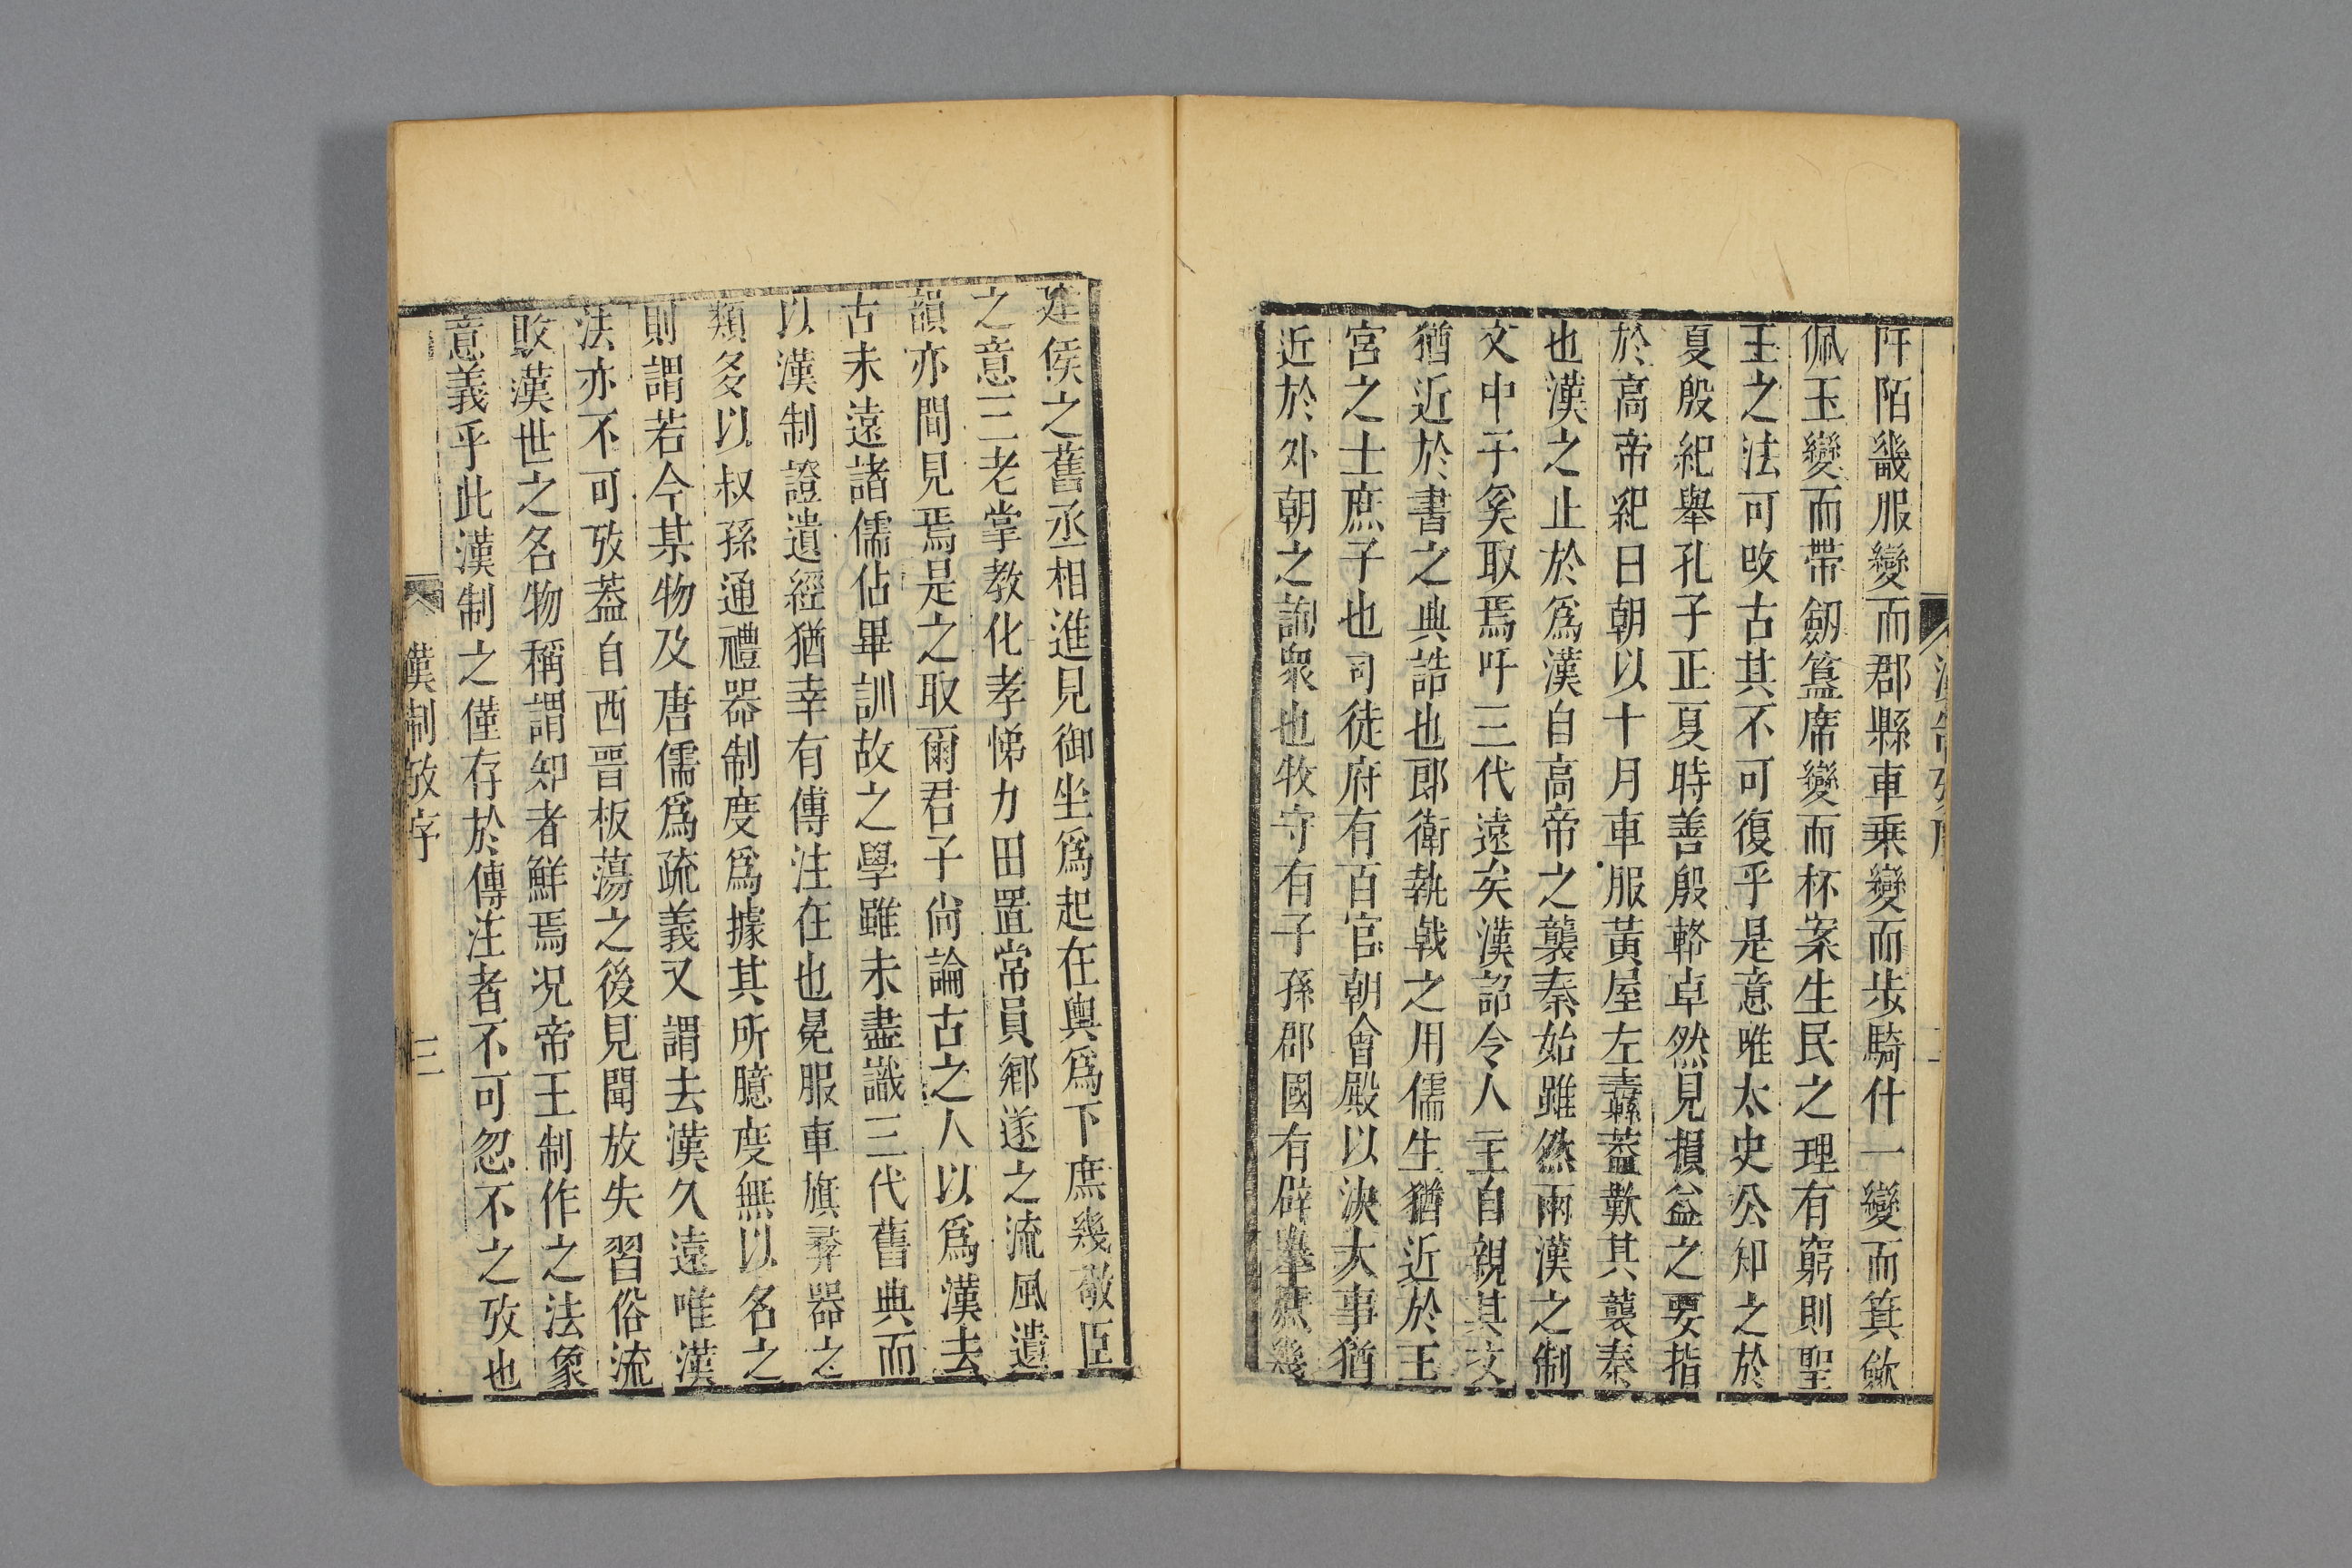 阡陌畿服變而郡縣車乗變而歩騎什一變而箕歛
佩玉變而帶劒簋席變而杯案生民之理有窮則聖
王之法可攺古其不可復乎是意唯太史公知之於
夏殷紀舉孔子正夏時善殷輅卓然見損益之要指
於高帝紀曰朝以十月車服黃屋左纛葢歎其襲秦
也漢之止於爲漢自高帝之襲秦始雖然兩漢之制
文中子矣取焉吁三代遠矣漢詔令人主自親其文
猶近於書之典誥也郎衛執戟之用儒生猶近於王
宮之士庶子也司徒府有百官朝會殿以决大事猶
近於外朝之詢衆也牧守有子孫郡國有辟舉庶幾
建侯之舊丞相進見御坐爲起在輿爲下庶幾敬臣
之意三老掌教化孝悌力田置常員鄉遂之流風遺
韻亦間見焉是之取爾君子尙論古之人以爲漢去
古未遠諸儒佔畢訓故之學雖未盡識三代舊典而
以漢制證遺經猶幸有傳注在也冕服車旗彝器之
類多以叔孫通禮器制度爲據其所臆度無以名之
則謂若今某物及唐儒爲疏義又謂去漢久遠唯漢
法亦不可攷葢自西晉板蕩之後見聞放失習俗流
敗漢世之名物稱謂知者鮮焉况帝王制作之法象
意義乎此漢制之僅存於傳注者不可忽不之攷也
漢制攷序
三